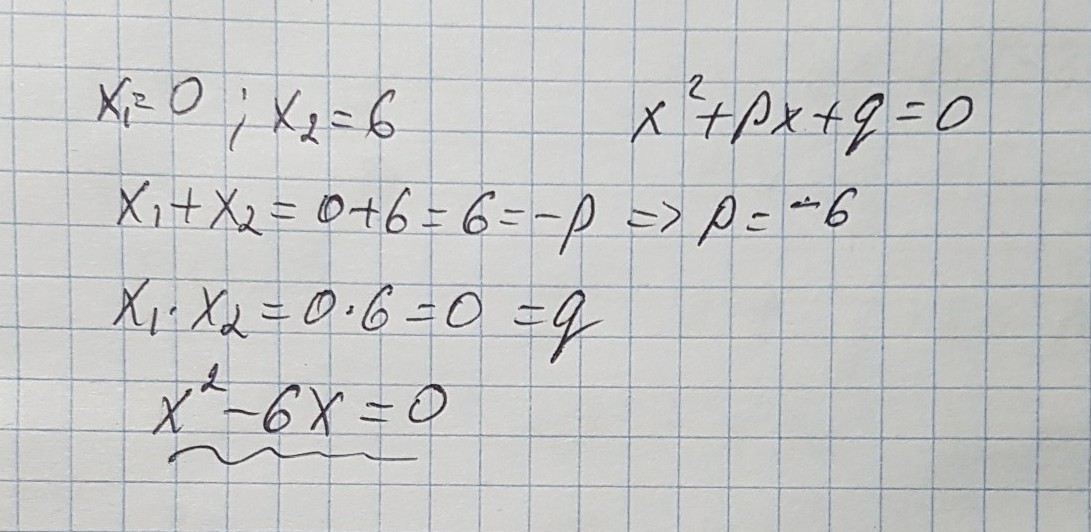 x₁=0 ; x₂=6 x²+px+q=0
x₁+x₂=0+6=6=-p => p=-6
x₁·x₂=0·6=0 =q
x²-6x=0